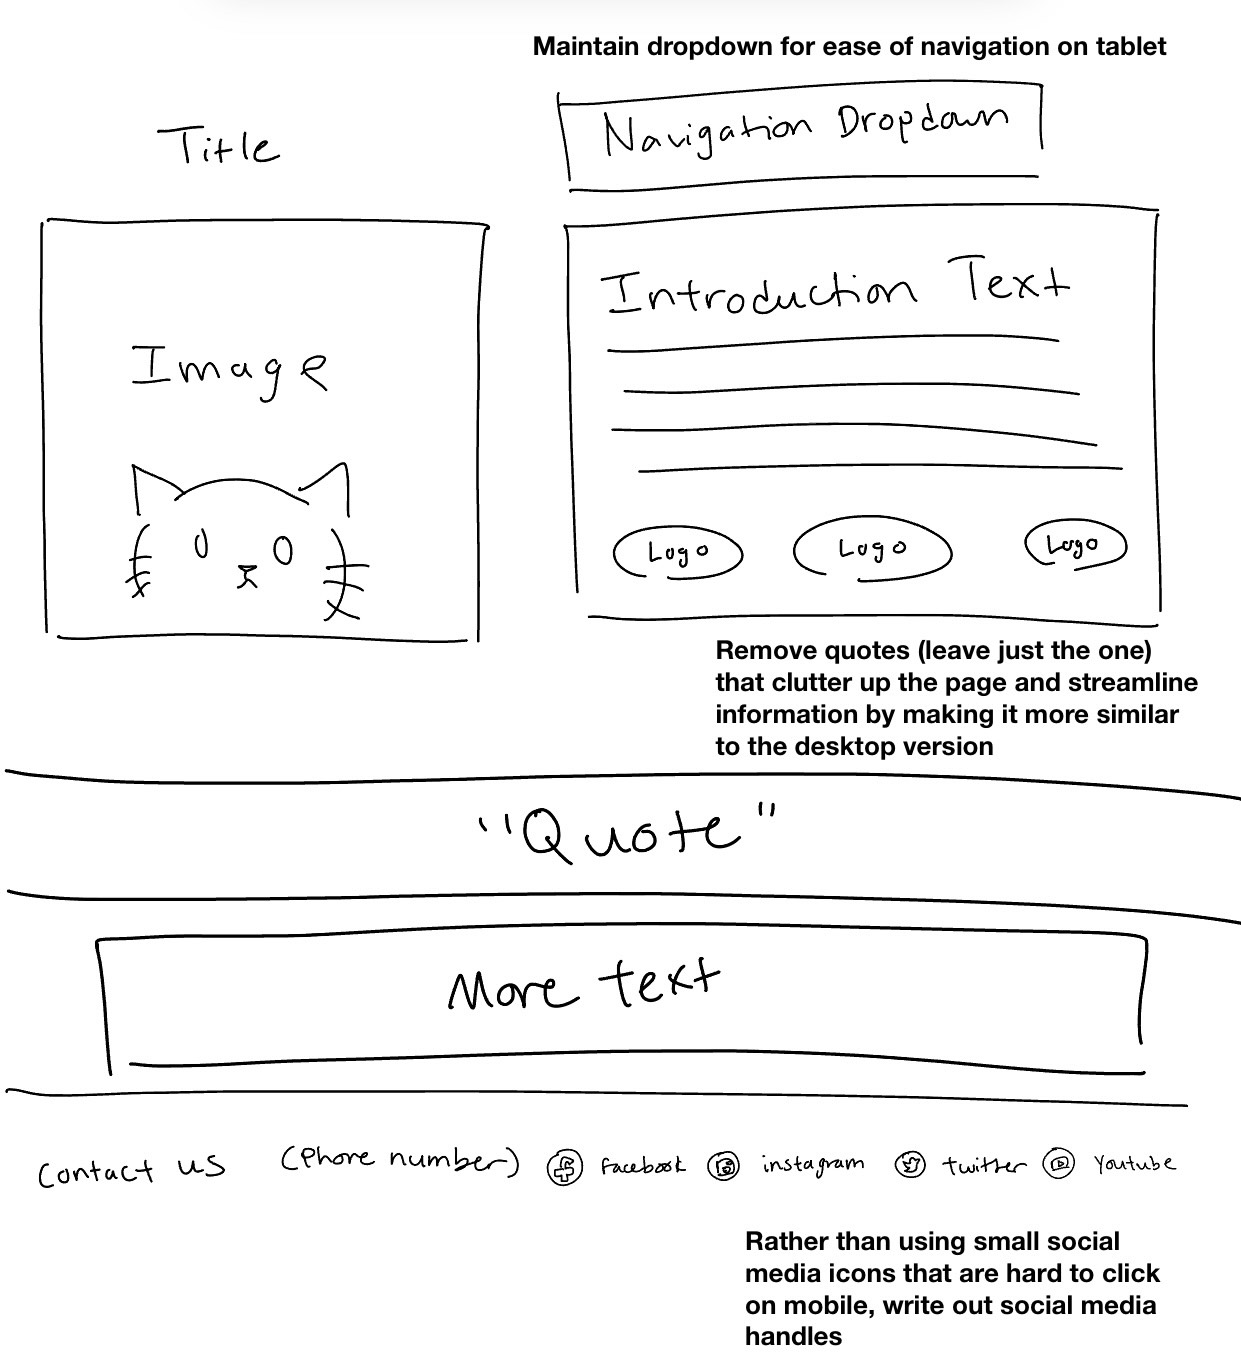 Maintain dropdown for ease of navigation on tablet
Title
Navigation Dropdown
Image
Introduction Text
Logo
Logo
Logo
Remove quotes (leave just the one)
that clutter up the page and streamline
information by making it more similar
to the desktop version
"Quote"
More text
Contact us (Phone number) facebook instagram twitter Youtube
Rather than using small social
media icons that are hard to click
on mobile, write out social media
handles